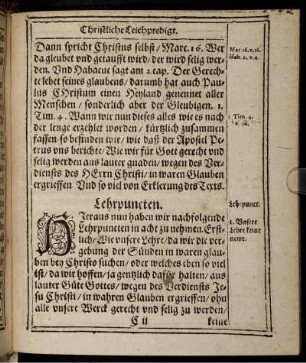 Christliche Leichpredigt.
Dann spricht Christus selbst / Marc. 16. Wer
da gleubet vnd getaufft wird / der wird selig wer-
den. Vnd Habacuc sagt am 2. cap. Der Gerech-
te lebet seines glaubens / darumb hat auch Pau-
lus CHristum einen Heyland genennet aller
Menschen / sonderlich aber der Gleubigen. 1.
Tim. 4. Wann wir nun dieses alles wie es nach
der lenge erzehlet worden / kürtzlich zusammen
fassen / so befinden wir / wie daß der Apostel Pe-
trus vns berichte: Wie wir für Gott gerecht vnd
selig werden aus lauter gnaden / wegen des Ver-
diensts des HErrn Christi / in waren Glauben
ergrieffen. Vnd so viel von Erklerung des Texts.
Mar. 16. v. 16.
Hab. 2. v. 4.
1 Tim. 4.
Lehrpuncten.
HJeraus nun haben wir nachfolgende
Lehrpuncten in acht zu nehmen. Erst-
lich / Die vnsere Lehre / da wir die ver-
gebung der Sünden in waren glau-
ben bey Christo suchen / oder welches eben so viel
ist / da wir hoffen / ja gentzlich dafür halten / aus
lauter Güte Gottes / wegen des Verdiensts Je-
su Christi / in wahren Glauben ergrieffen / ohn
alle vnser Werck gerecht vnd selig zu werden /
Lehrpunct.
1. Vnsere
Lehre keine
newe.
C ij
keine